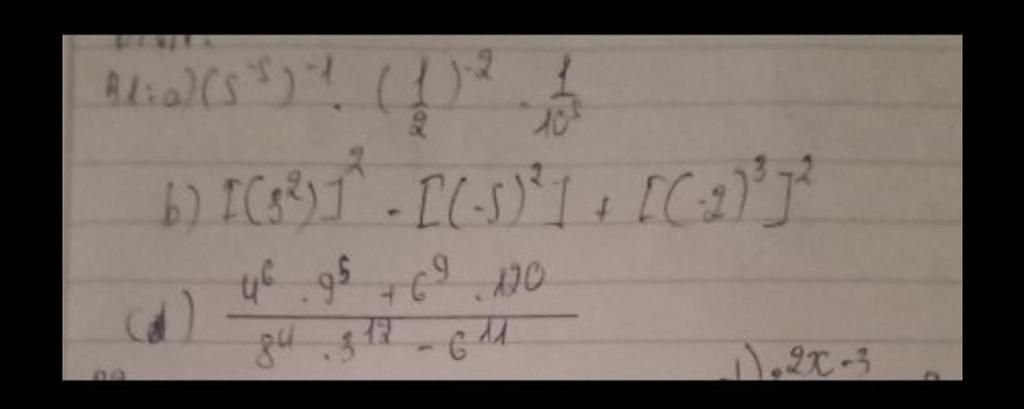 B1: a) (5^-5)^-1 . (1/2)^-2 . 1/10^5
b) [(3^2)]^2 - [(-5)^2] + [(-2)^3]^2
(d) (4^6 . 9^5 + 6^9 . 120) / (8^4 . 3^12 - 6^11)
1) . 2x - 3